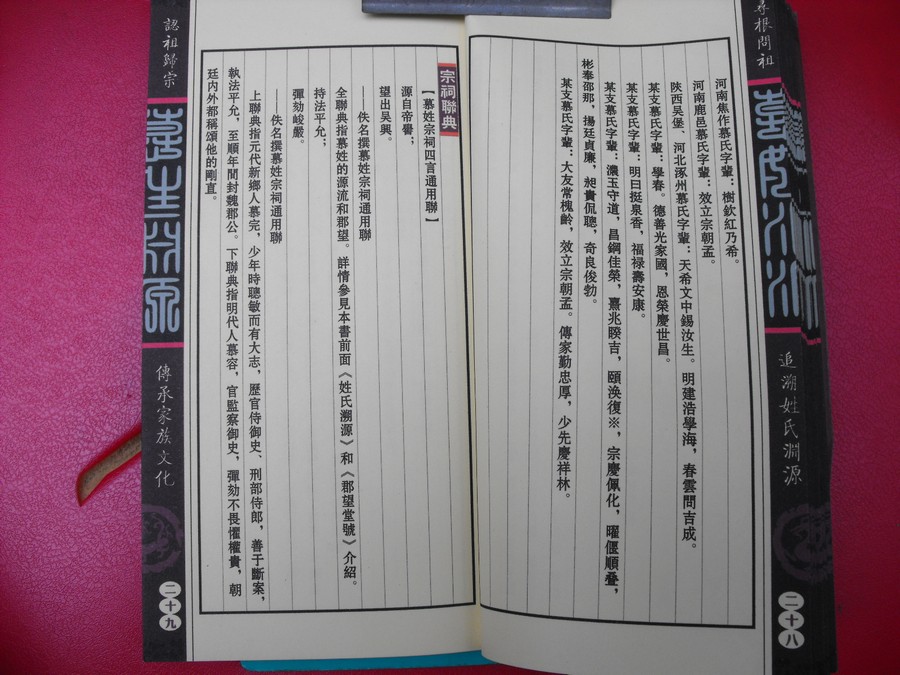 尋根問祖
追溯姓氏淵源
二十八
河南焦作慕氏字輩：樹欽紅乃希。
河南鹿邑慕氏字輩：效立宗朝孟。
陝西吴堡、河北涿州慕氏字輩：天希文中錫汝生。明建浩學海，春雲問吉成。
某支慕氏字輩：學春。德善光家國，恩榮慶世昌。
某支慕氏字輩：明曰挺泉香，福禄壽安康。
某支慕氏字輩：濃玉守道，昌鋼佳榮，熹兆睽吉，頤渙復※，宗慶佩化，曜偃順叠，
彬奉邵那，揚廷貞廉，昶貴侃聰，奇良俊勃。
某支慕氏字輩：大友常槐齡，效立宗朝孟。傳家勤忠厚，少先慶祥林。
宗祠聯典
【慕姓宗祠四言通用聯】
源自帝嚳；
望出吴興。
——佚名撰慕姓宗祠通用聯
全聯典指慕姓的源流和郡望。詳情參見本書前面《姓氏溯源》和《郡望堂號》介紹。
持法平允；
彈劾峻嚴。
——佚名撰慕姓宗祠通用聯
上聯典指元代新鄉人慕完，少年時聰敏而有大志，歷官侍御史、刑部侍郎，善于斷案，
執法平允，至順年間封魏郡公。下聯典指明代人慕容，官監察御史，彈劾不畏懼權貴，朝
廷内外都稱頌他的剛直。
認祖歸宗
傳承家族文化
二十九